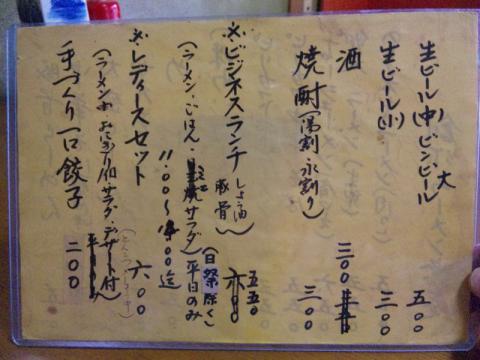 生ビール(中)ビンビール大 五〇〇
生ビール(小) 三〇〇
酒 三〇〇
焼酎(湯割り、水割り) 三〇〇
※ビジネスランチ しょうゆ 豚骨 五五〇
(ラーメン、ごはん、サラダ)平日のみ(日祭除く)
11:00〜
迄
※レディースセット 六〇〇
(ラーメン小 おにぎり1個 サラダ・デザート付)
手づくり一口餃子 二〇〇